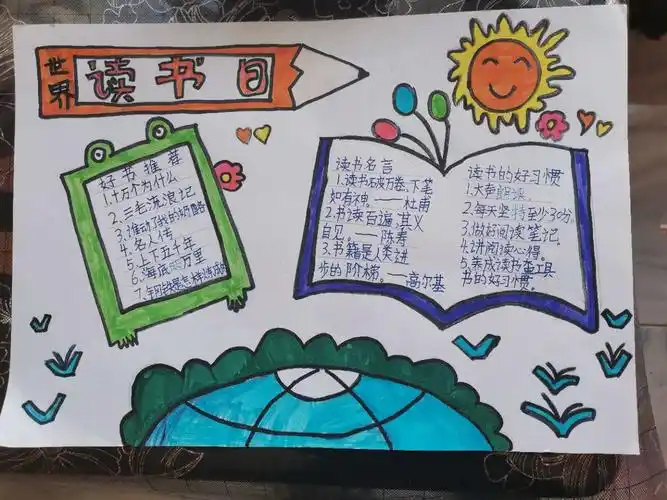 世界
读书日
好书推荐
1.十万个为什么
2.三毛流浪记
3.谁动了我的奶酪
4.名人传
5.上下五千年
6.海底两万里
7.钢铁是怎样炼成的
读书名言
1.读书破万卷，下笔
如有神。——杜甫
2.书读百遍，其义
自见。——陈寿
3.书籍是人类进
步的阶梯。——高尔基
读书的好习惯
1.大声朗读。
2.每天坚持至少30分。
3.做好阅读笔记。
4.讲阅读心得。
5.养成读书查工具
书的好习惯。